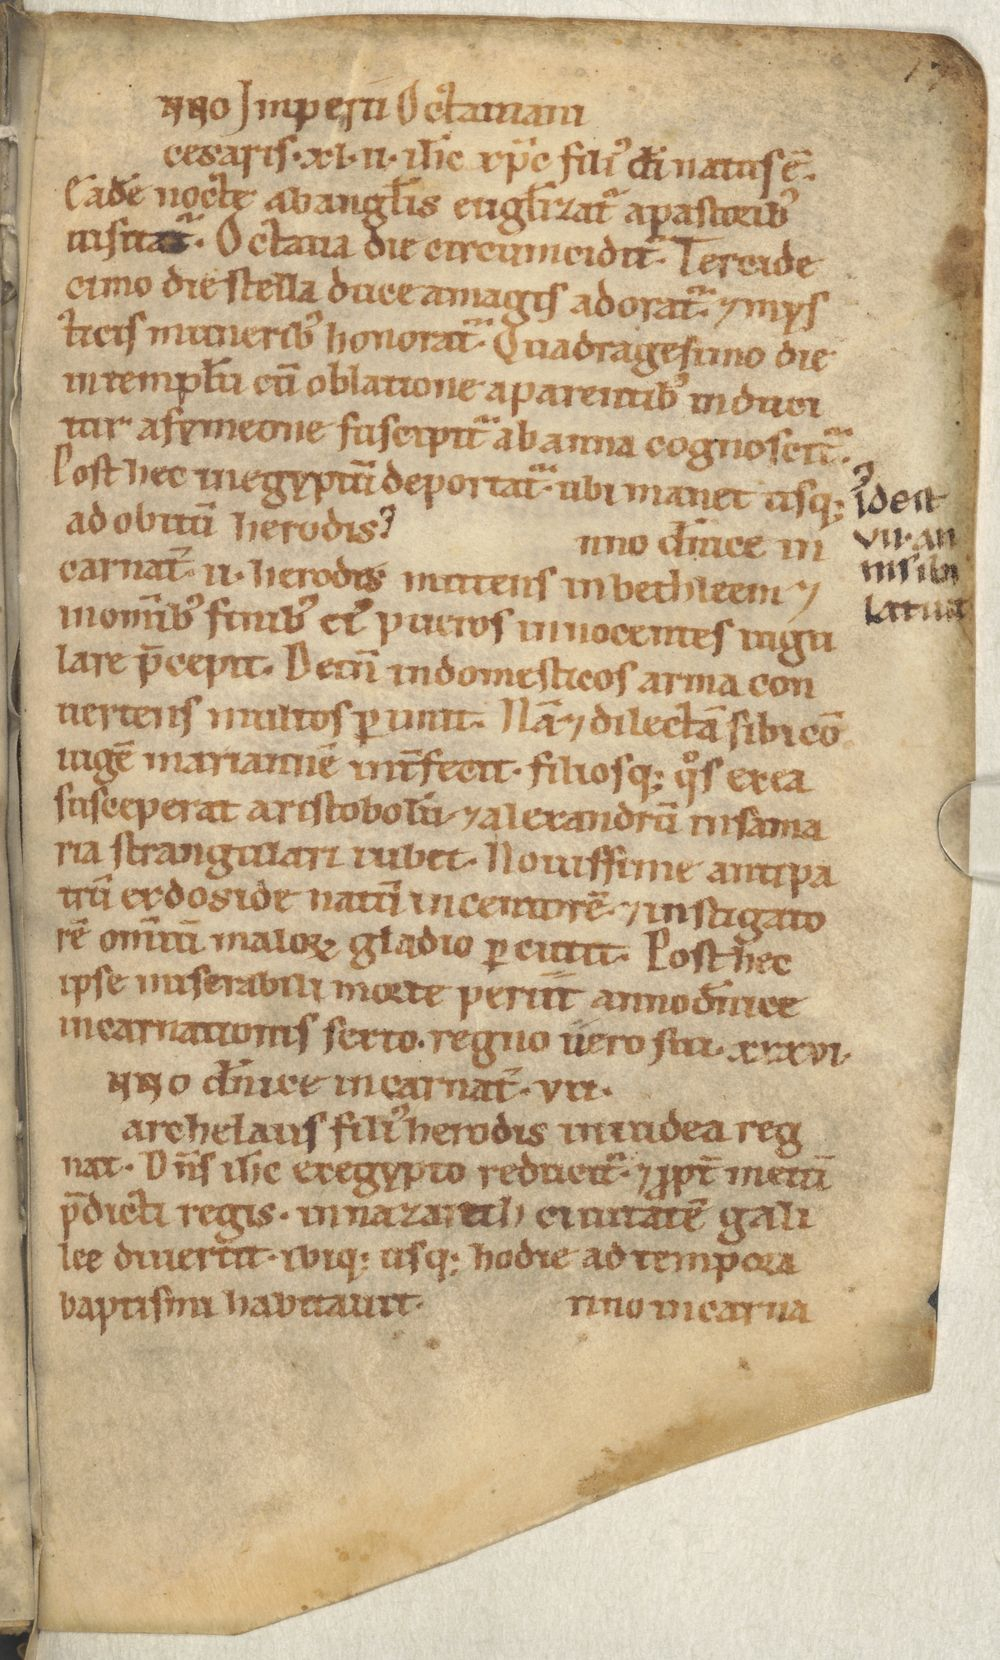 17
nno Imperii Octauiani
cesaris. xl. ii. ih̄c xp̄c filiꝰ dī natus ē.
Eadē nocte ab angłis euglizat᷑ a pastoribꝰ
uisitat᷑. Octaua die circumcidit᷑. Tercide
cimo die stella duce a magis adorat᷑. ⁊ mys
ticis muneribꝰ honorat᷑. Quadragesimo die
in templū cū oblatione a parentibꝰ induci
tur a symeone suscipit᷑ ab anna cognoscit᷑.
Post hec in egyptū deportat᷑. ubi manet usq;
ad obitū herodis
id est
vii. an
nis ibi
latuit
nno dn̄ice in
carnat̄. ii. herodes mittens in bethleem ⁊
in om̄ibꝰ finibꝰ eiꝰ pueros innocentes iugu
lare p̄cepit. Deinī in domesticos arma con
uertens multos ꝑimit. Nā ⁊ dilectā sibi cō
iugē mariannē int̄fecit. filiosq; qͦs ex ea
susceperat aristobolū ⁊ alexandrū in sama
ria strangulari iubet. Nouissime antipa
trū ex doside natū incentorē. ⁊ instigato
rē om̄iū maloꝝ gladio ꝑcutit. Post hec
ipse miserabili morte periit anno dn̄ice
incarnationis sexto. regno uero sui. xxxvi.
nno dn̄ice incarnat̄. vii.
archelaus filiꝰ herodis in iudea reg
nat. Dn̄s ih̄c ex egypto reducit᷑. ⁊ ꝓpt̄ metū
p̄dicti regis. in nazareth ciuitatē gali
lee diuertit. ibiq; usq; hodie ad tempora
baptismi habitauit.
nno incarna